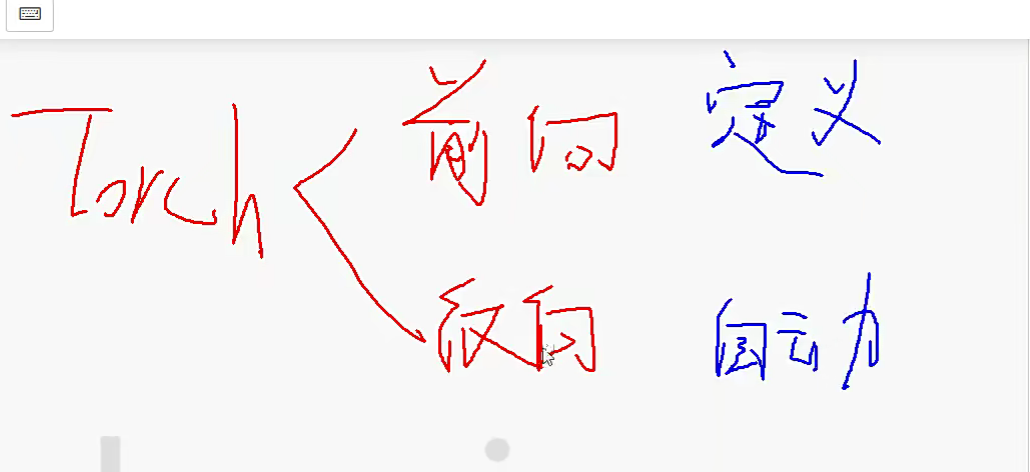 Torch
前向 定义
反向 自动